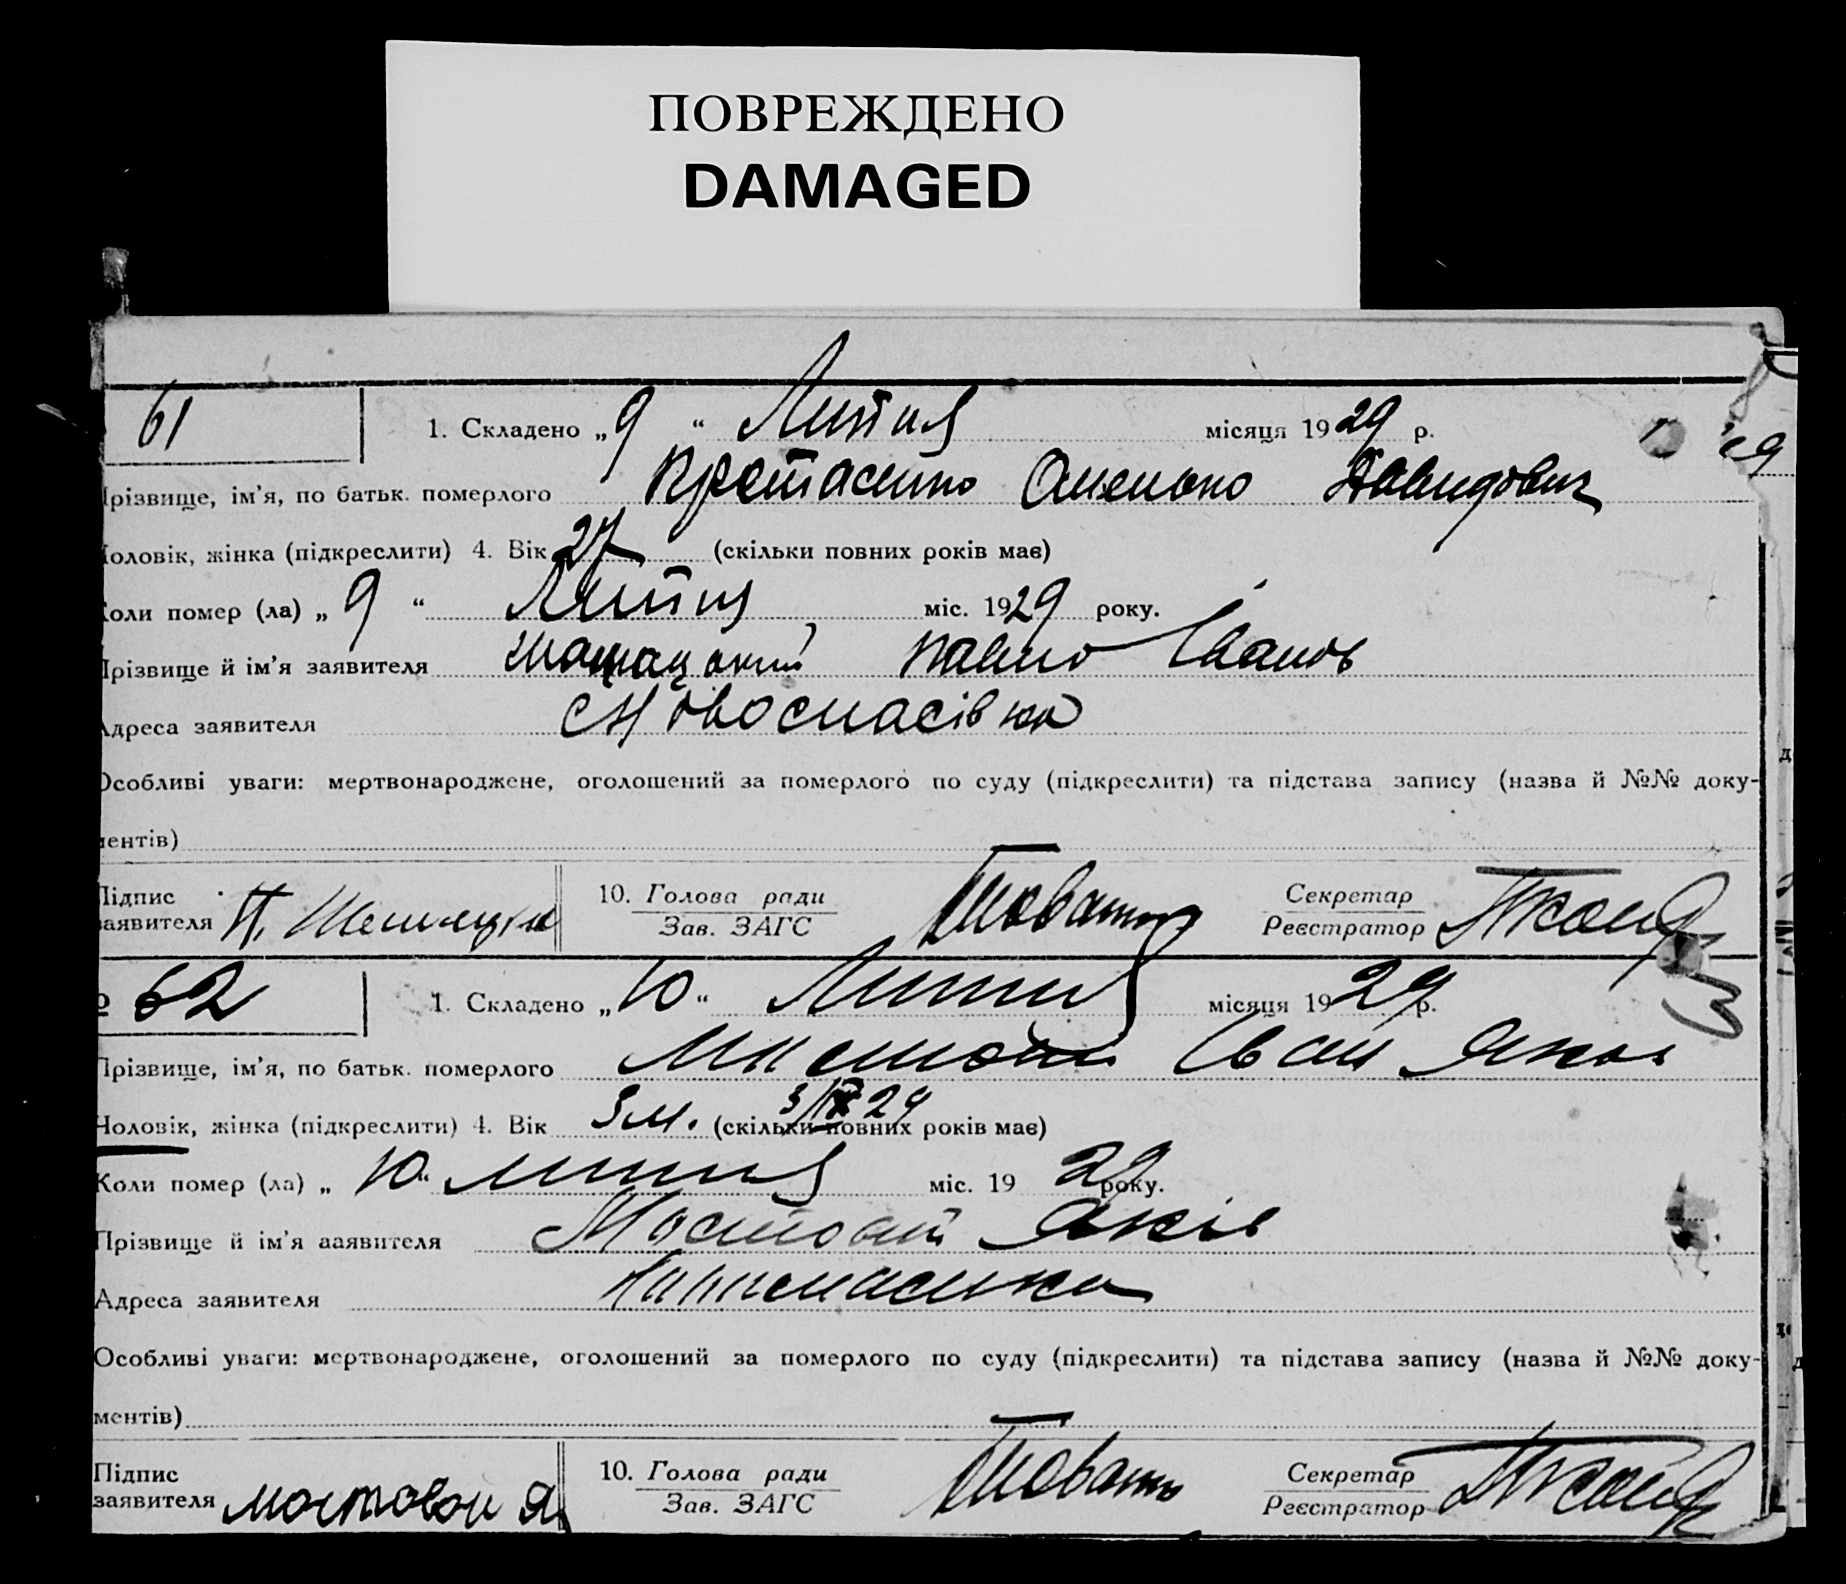 ПОВРЕЖДЕНО
DAMAGED
61 1. Складено „ 9 “ Липня місяця 1929 р.
Прізвище, ім’я, по батьк. померлого Омелько Давидович
Чоловік, жінка (підкреслити) 4. Вік 27 (скільки повних років має)
Коли помер (ла) „ 9 “ Липня міс. 1929 року.
Прізвище й ім’я заявителя Павло Іванов
Адреса заявителя с Новоспасівка
Особливі уваги: мертвонароджене, оголошений за померлого по суду (підкреслити) та підстава запису (назва й №№ доку-
ментів)
Підпис заявителя П. 10. Голова ради Секретар
Зав. ЗАГС Реєстратор
62 1. Складено „ 10 “ Липня місяця 1929 р.
Прізвище, ім’я, по батьк. померлого Мостовий Іван Яков
Чоловік, жінка (підкреслити) 4. Вік 3 м. (скільки повних років має)
Коли помер (ла) „ 10 “ липня міс. 1929 року.
Прізвище й ім’я заявителя Мостовий Яків
Адреса заявителя
Особливі уваги: мертвонароджене, оголошений за померлого по суду (підкреслити) та підстава запису (назва й №№ доку-
ментів)
Підпис заявителя Мостовой Я 10. Голова ради Секретар
Зав. ЗАГС Реєстратор